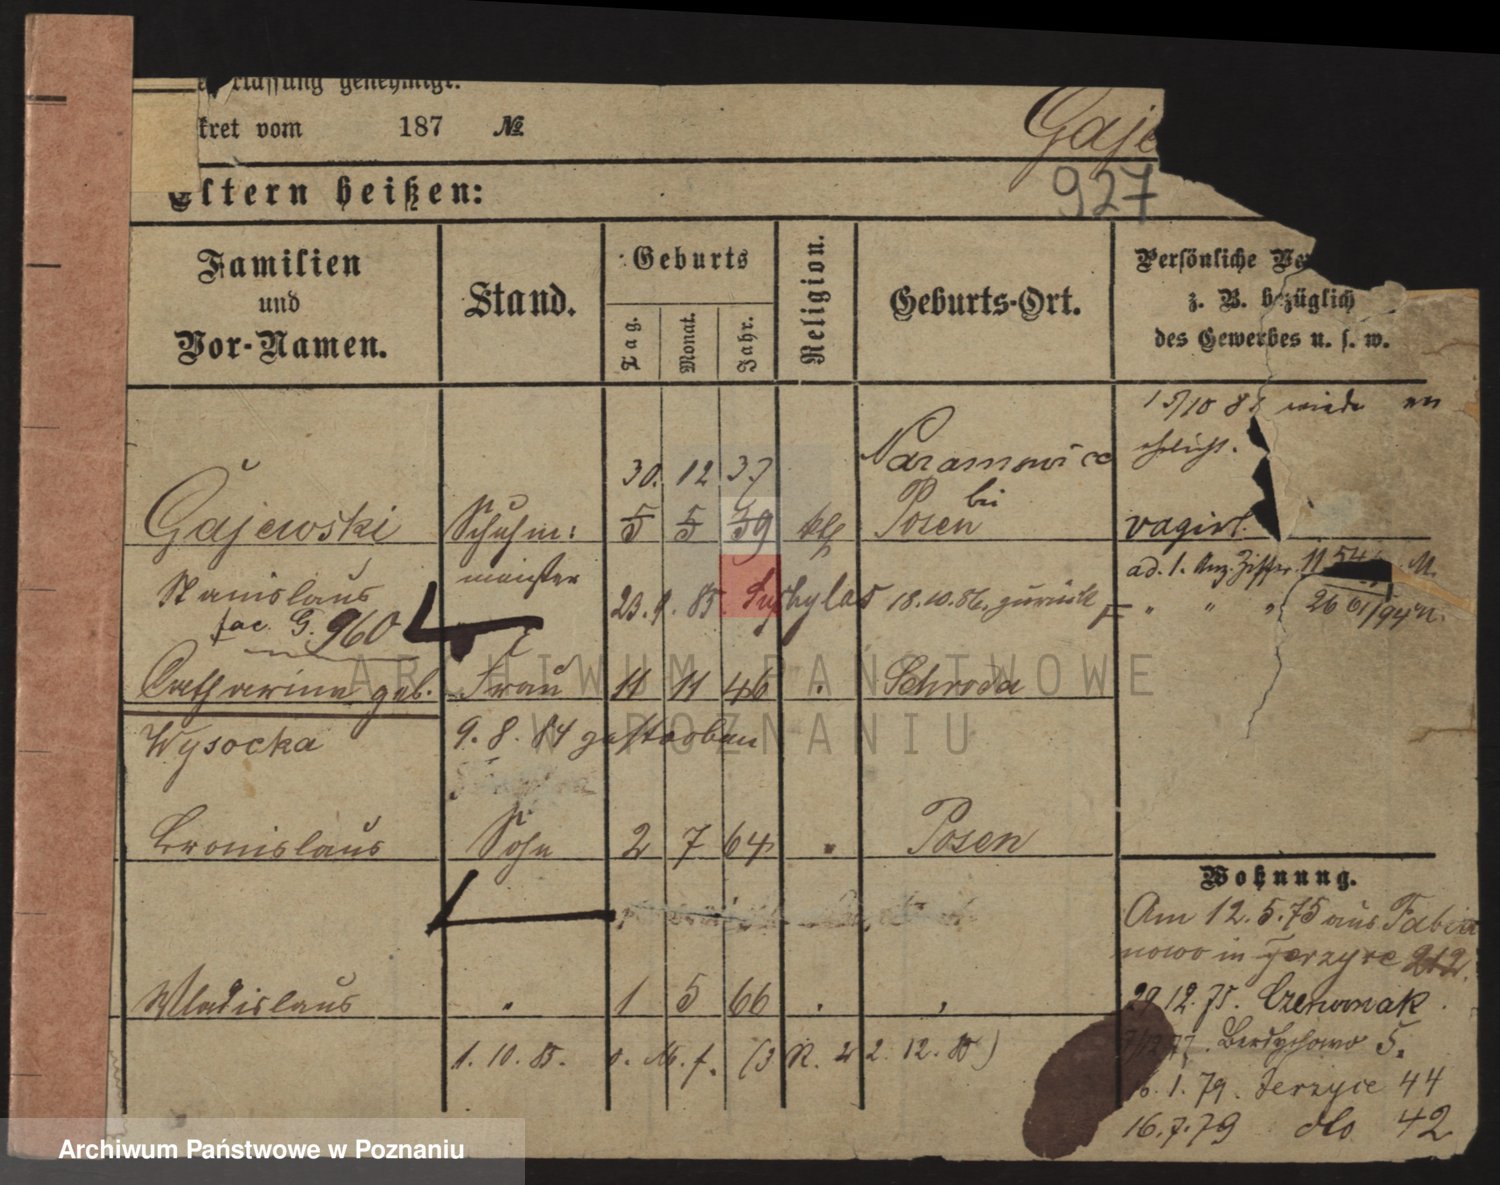 rlassung genehmigt.
kret vom 187 № Gaje
927
Eltern heißen:
Familien
und
Vor-Namen.
Stand.
Geburts
Tag.
Monat.
Jahr.
Religion.
Geburts-Ort.
Persönliche Ver
z. B. bezüglich
des Gewerbes u. s. w.
15/10 88 wieder
30. 12 37 Naramowice
bei
Gajewski Schuhm: 5 5 39 kth Posen vagirt.
Stanislaus meister
ad. 1. Anz. Ziffer 11 54
23. 9. 85. 18.10.86. zurück " " " 26
fac. G. 960
Catharina geb. Frau 11 11 46 . Schroda
Wysocka 9. 8. 84 gestorben
Bronislaus Sohn 2 7 64 " Posen
Wohnung.
Am 12. 5. 75 aus Fabia
nowo in Jerzyce 212.
Wladislaus " 1 5 66 " "
29.12.75. Czerwonak.
Berdychowo 5.
1. 10. 85. o. M. f. (3 R. 2 2. 12. 85)
6. 1. 79. Jerzyce 44
16.7.79 dto 42
ARCHIWUM PAŃSTWOWE
W POZNANIU
Archiwum Państwowe w Poznaniu